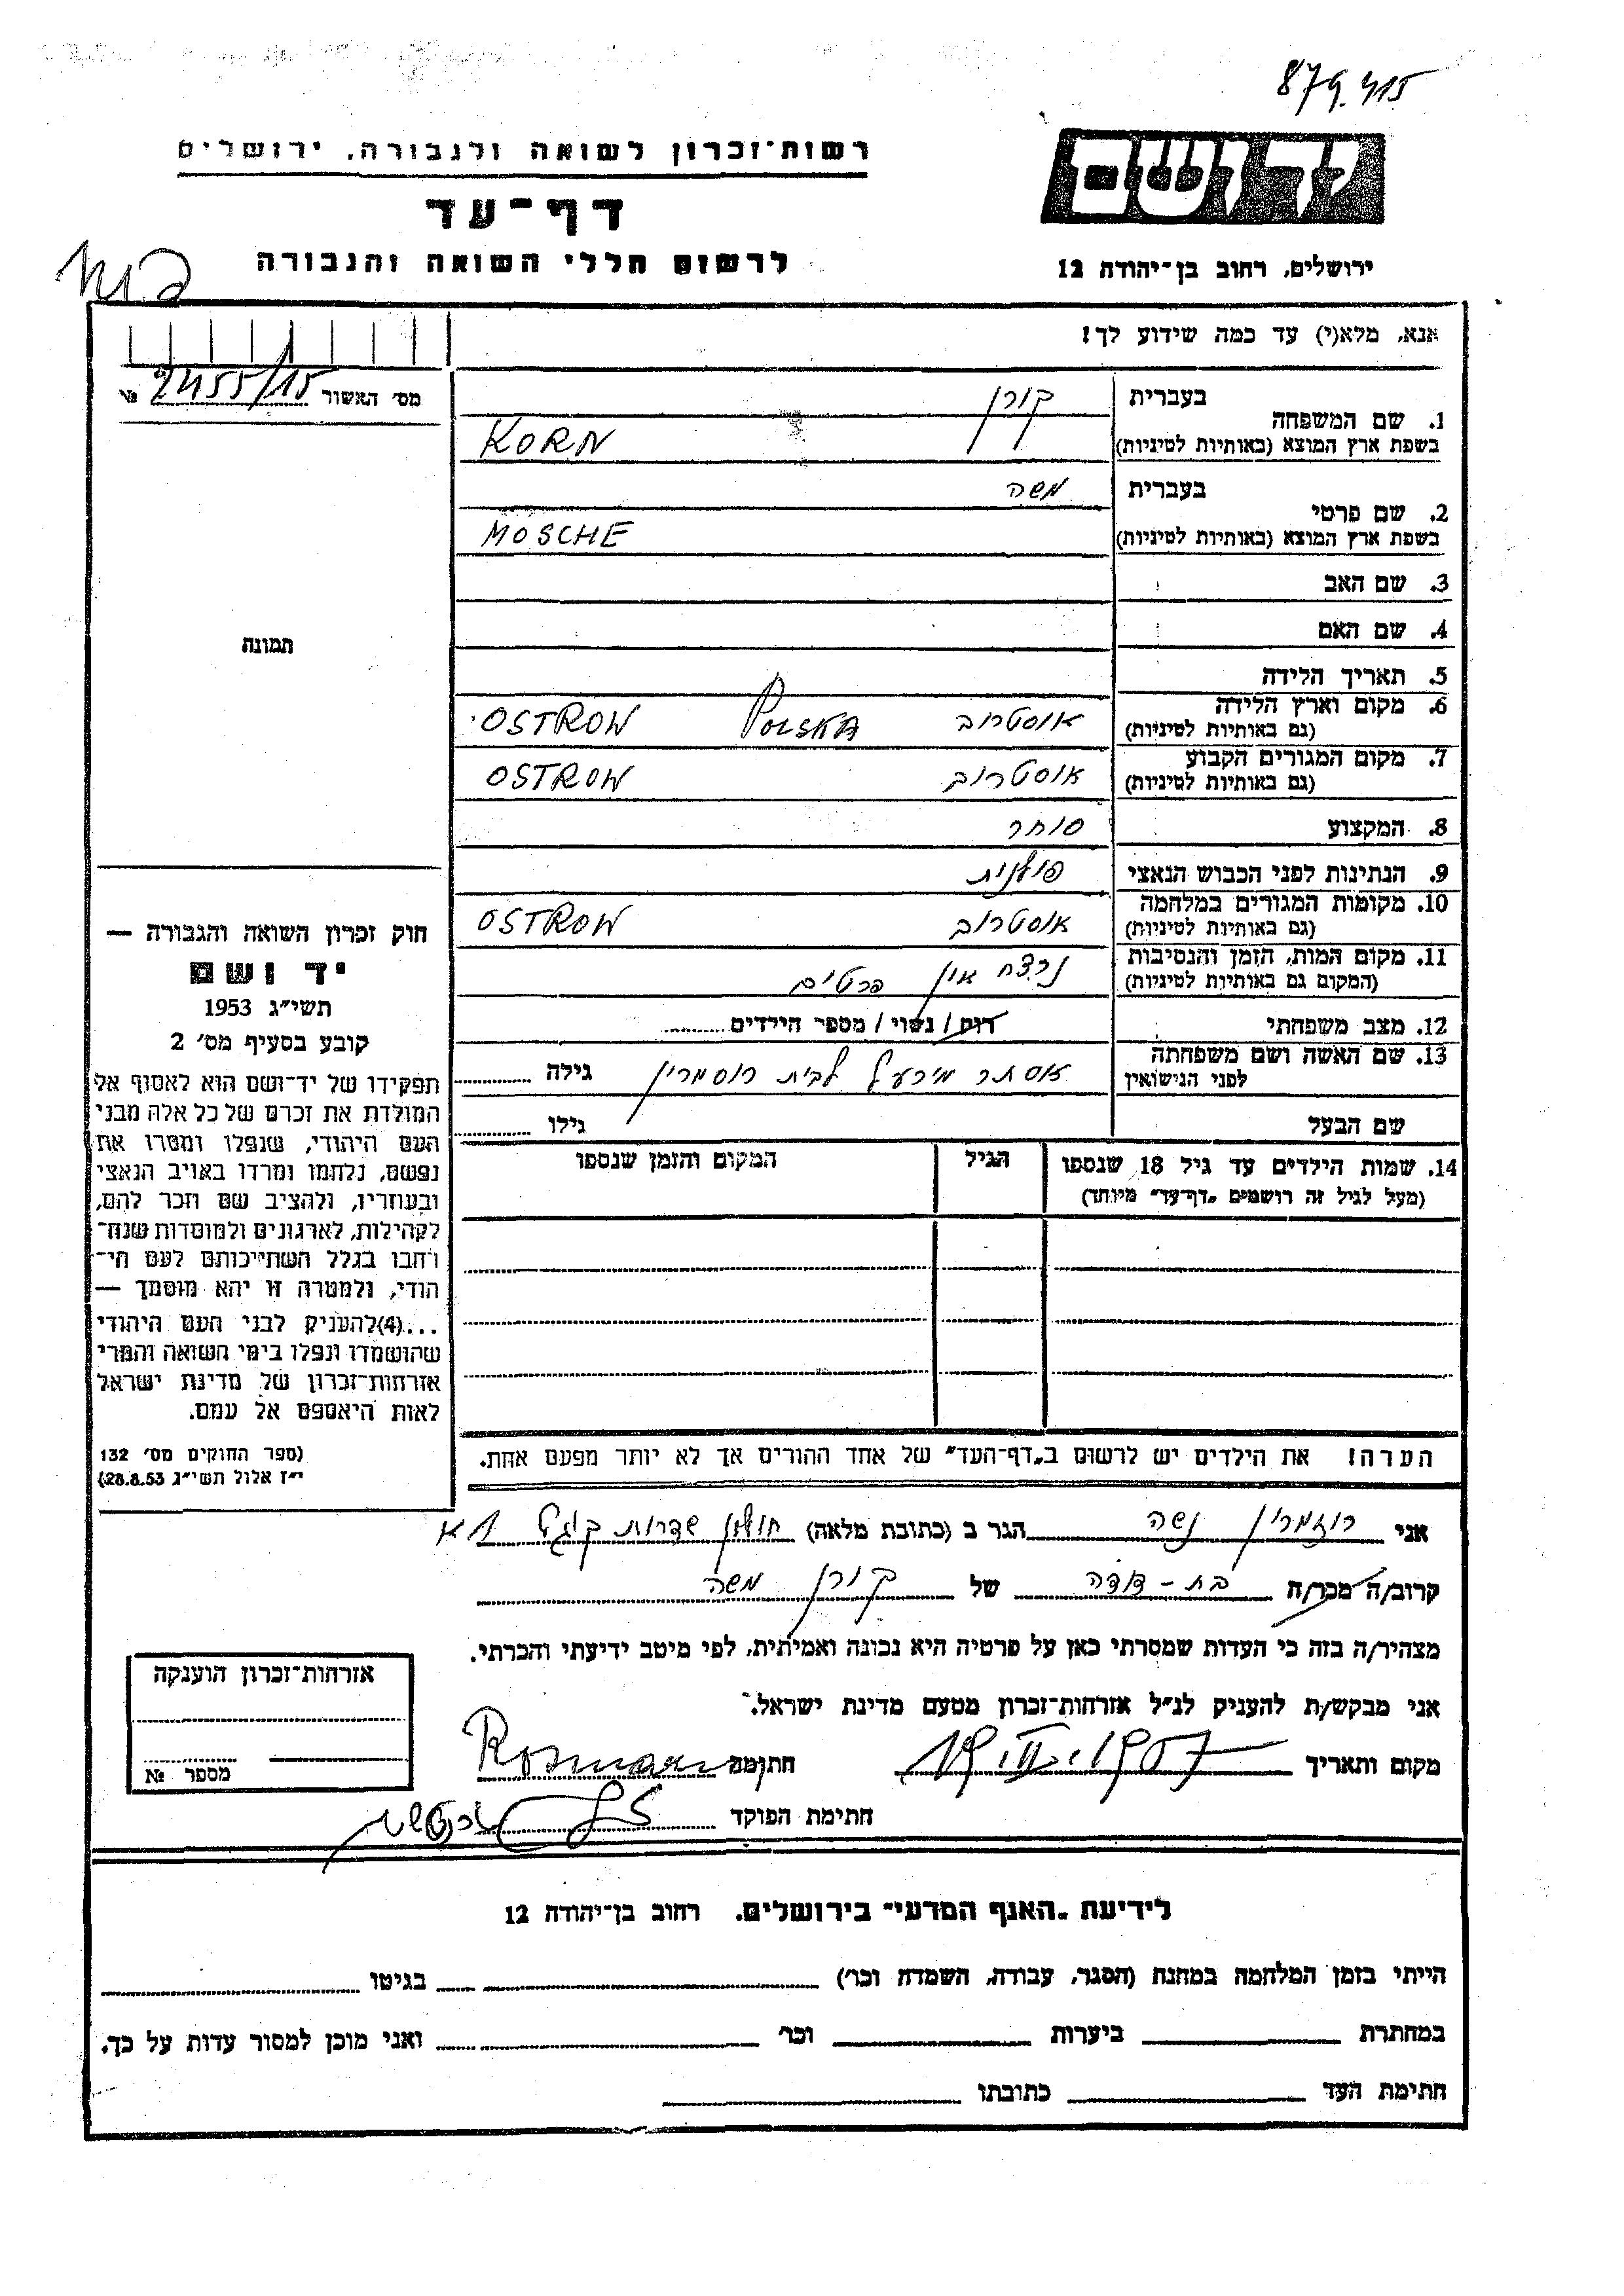 879.415
רשות־זכרון לשואה ולגבורה, ירושלים
דף־עד
לרשום חללי השואה והגבורה
יד ושם
ירושלים, רחוב בן־יהודה 12
אנא, מלא(י) עד כמה שידוע לך!
מס׳ האשור 2455/15 №
1. שם המשפחה
בעברית קורן
בשפת ארץ המוצא (באותיות לטיניות) KORN
2. שם פרטי
בעברית משה
בשפת ארץ המוצא (באותיות לטיניות) MOSCHE
3. שם האב
4. שם האם
תמונה
5. תאריך הלידה
6. מקום וארץ הלידה
(גם באותיות לטיניות) אוסטרוב POLSKA OSTROW
7. מקום המגורים הקבוע
(גם באותיות לטיניות) אוסטרוב OSTROW
8. המקצוע סוחר
9. הנתינות לפני הכבוש הנאצי פולנית
10. מקומות המגורים במלחמה
(גם באותיות לטיניות) אוסטרוב OSTROW
11. מקום המות, הזמן והנסיבות
(המקום גם באותיות לטיניות) נרצח אין פרטים
12. מצב משפחתי רווק / נשוי / מספר הילדים
13. שם האשה ושם משפחתה
לפני הנישואין אסתר לבית רוסמרין גילה
שם הבעל גילו
14. שמות הילדים עד גיל 18 שנספו
(מעל לגיל זה רושמים „דף־עד״ מיוחד)
הגיל
המקום והזמן שנספו
חוק זכרון השואה והגבורה —
יד ושם
תשי״ג 1953
קובע בסעיף מס׳ 2
תפקידו של יד־ושם הוא לאסוף אל
המולדת את זכרם של כל אלה מבני
העם היהודי, שנפלו ומסרו את
נפשם, נלחמו ומרדו באויב הנאצי
ובעוזריו, ולהציב שם וזכר להם,
לקהילות, לארגונים ולמוסדות שנח־
רבו בגלל השתייכותם לעם הי־
הודי, ולמטרה זו יהא מוסמך —
...(4)להעניק לבני העם היהודי
שהושמדו ונפלו בימי השואה והמרי
אזרחות־זכרון של מדינת ישראל
לאות היאספם אל עמם.
(ספר החוקים מס׳ 132
י״ז אלול תשי״ג 28.8.53)
הערה! את הילדים יש לרשום ב„דף־העד״ של אחד ההורים אך לא יותר מפעם אחת.
אני רוזמרין נשה הגר ב (כתובת מלאה) חולון שדרות קוגל 1 א
קרוב/ה מכר/ה בת-דודה של קורן משה
מצהיר/ה בזה כי העדות שמסרתי כאן על פרטיה היא נכונה ואמיתית, לפי מיטב ידיעתי והכרתי.
אני מבקש/ת להעניק לנ״ל אזרחות־זכרון מטעם מדינת ישראל.
מקום ותאריך חתימה
חתימת הפוקד
אזרחות־זכרון הוענקה
מספר №
לידיעת „האגף המדעי״ בירושלים, רחוב בן־יהודה 12
הייתי בזמן המלחמה במחנה (הסגר, עבודה, השמדה וכו׳) בגיטו
במחתרת ביערות וכו׳ ואני מוכן למסור עדות על כך.
חתימת העד כתובתו